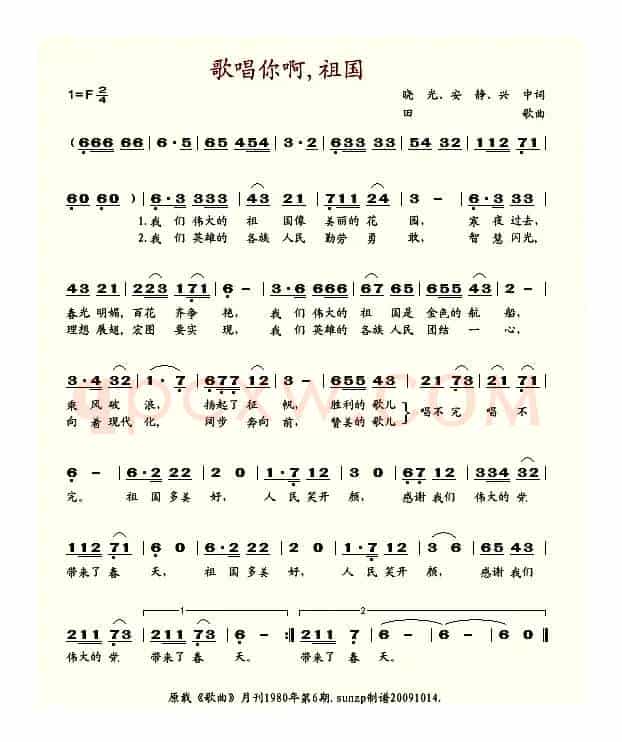 歌唱你啊,祖国
1=F 2/4
晓 光、安 静、兴 中词
田 歌曲
( 666 66 | 6·5 | 65 454 | 3·2 | 633 33 | 54 32 | 112 71 |
60 60 ) | 6·3 333 | 43 21 | 711 24 | 3 - | 6·3 33 |
1.我 们 伟大的 祖 国像 美丽的 花 园, 寒 夜 过去,
2.我 们 英雄的 各族 人民 勤劳 勇 敢, 智 慧 闪光,
43 21 | 223 171 | 6 - | 3·6 666 | 67 65 | 655 43 | 2 - |
春光 明媚, 百花 齐争 艳, 我 们 伟大的 祖 国是 金色的 航 船,
理想 展翅, 宏图 要实 现, 我 们 英雄的 各族 人民 团结 一 心,
3·4 32 | 1·7 | 677 12 | 3 - | 655 43 | 21 73 | 21 71 |
乘 风 破 浪, 扬起了 征 帆, 胜利的 歌儿 } 唱不 完 唱 不
向 着 现代 化, 阔步 奔向 前, 赞美的 歌儿
6 - | 6·2 22 | 2 0 | 1·7 12 | 3 0 | 67 12 | 334 32 |
完。 祖 国 多美 好, 人 民 笑开 颜, 感谢 我们 伟大的 党
112 71 | 6 0 | 6·2 22 | 2 0 | 1·7 12 | 3 6 | 65 43 |
带来了 春 天, 祖 国 多美 好, 人 民 笑开 颜, 感谢 我们
1 2
211 73 | 211 73 | 6 - :‖ 211 7 | 6 - | 6 - | 6 0 ‖
伟大的 党 带来了 春 天。 带来了 春 天。
原载《歌曲》月刊1980年第6期.sunzp制谱20091014.